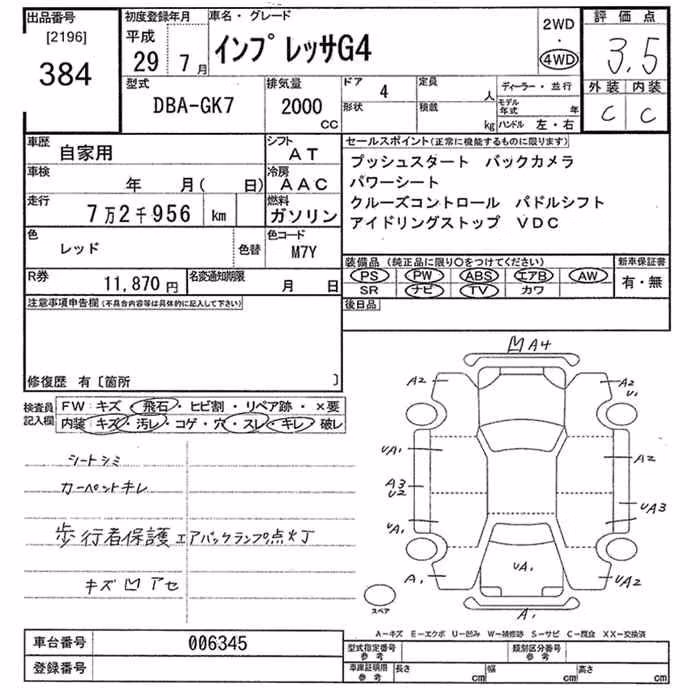 出品番号 初度登録年月 車名・グレード 2WD ・ 4WD 評価点
[2196] 平成
384 29 7月 インプレッサG4 3.5
型式 排気量 ドア 定員 ディーラー・並行 外装 内装
DBA-GK7 2000 CC 4 人 C C
形状 積載 kg モデル年式 年
ハンドル 左・右
車歴 自家用 シフト AT セールスポイント(正常に機能するものに限ります)
車検 年 月( 日) 冷房 AAC プッシュスタート バックカメラ
パワーシート
走行 7万2千956 km 燃料 ガソリン クルーズコントロール パドルシフト
アイドリングストップ VDC
色 レッド 色替 色コード M7Y
装備品(純正品に限り○をつけてください) 新車保証書
PS PW ABS エアB AW 有・無
SR ナビ TV カワ
R券 11,870円 名変通知期限 月 日
後日品
注意事項申告欄(不具合内容等は具体的に記入して下さい)
修復歴 有〔箇所 〕
検査員記入欄 FW:キズ・飛石・ヒビ割・リペア跡・×要
内装:キズ・汚レ・コゲ・穴・スレ・キレ・破レ
シートシミ
カーペントキレ
歩行者保護エアバックランプ点灯
キズ凹アセ
凹A4
A2 A2
U1
UA1 A2
A3
U2 UA3
UA1
A1 UA1 UA2
A1
スペア
A-キズ E-エクボ U-凹み W-補修跡 S-サビ C-腐食 XX-交換済
車台番号 006345 型式指定番号 参考 類別区分番号 参考
登録番号 車庫証明用 参考 長さ cm 幅 cm 高さ cm